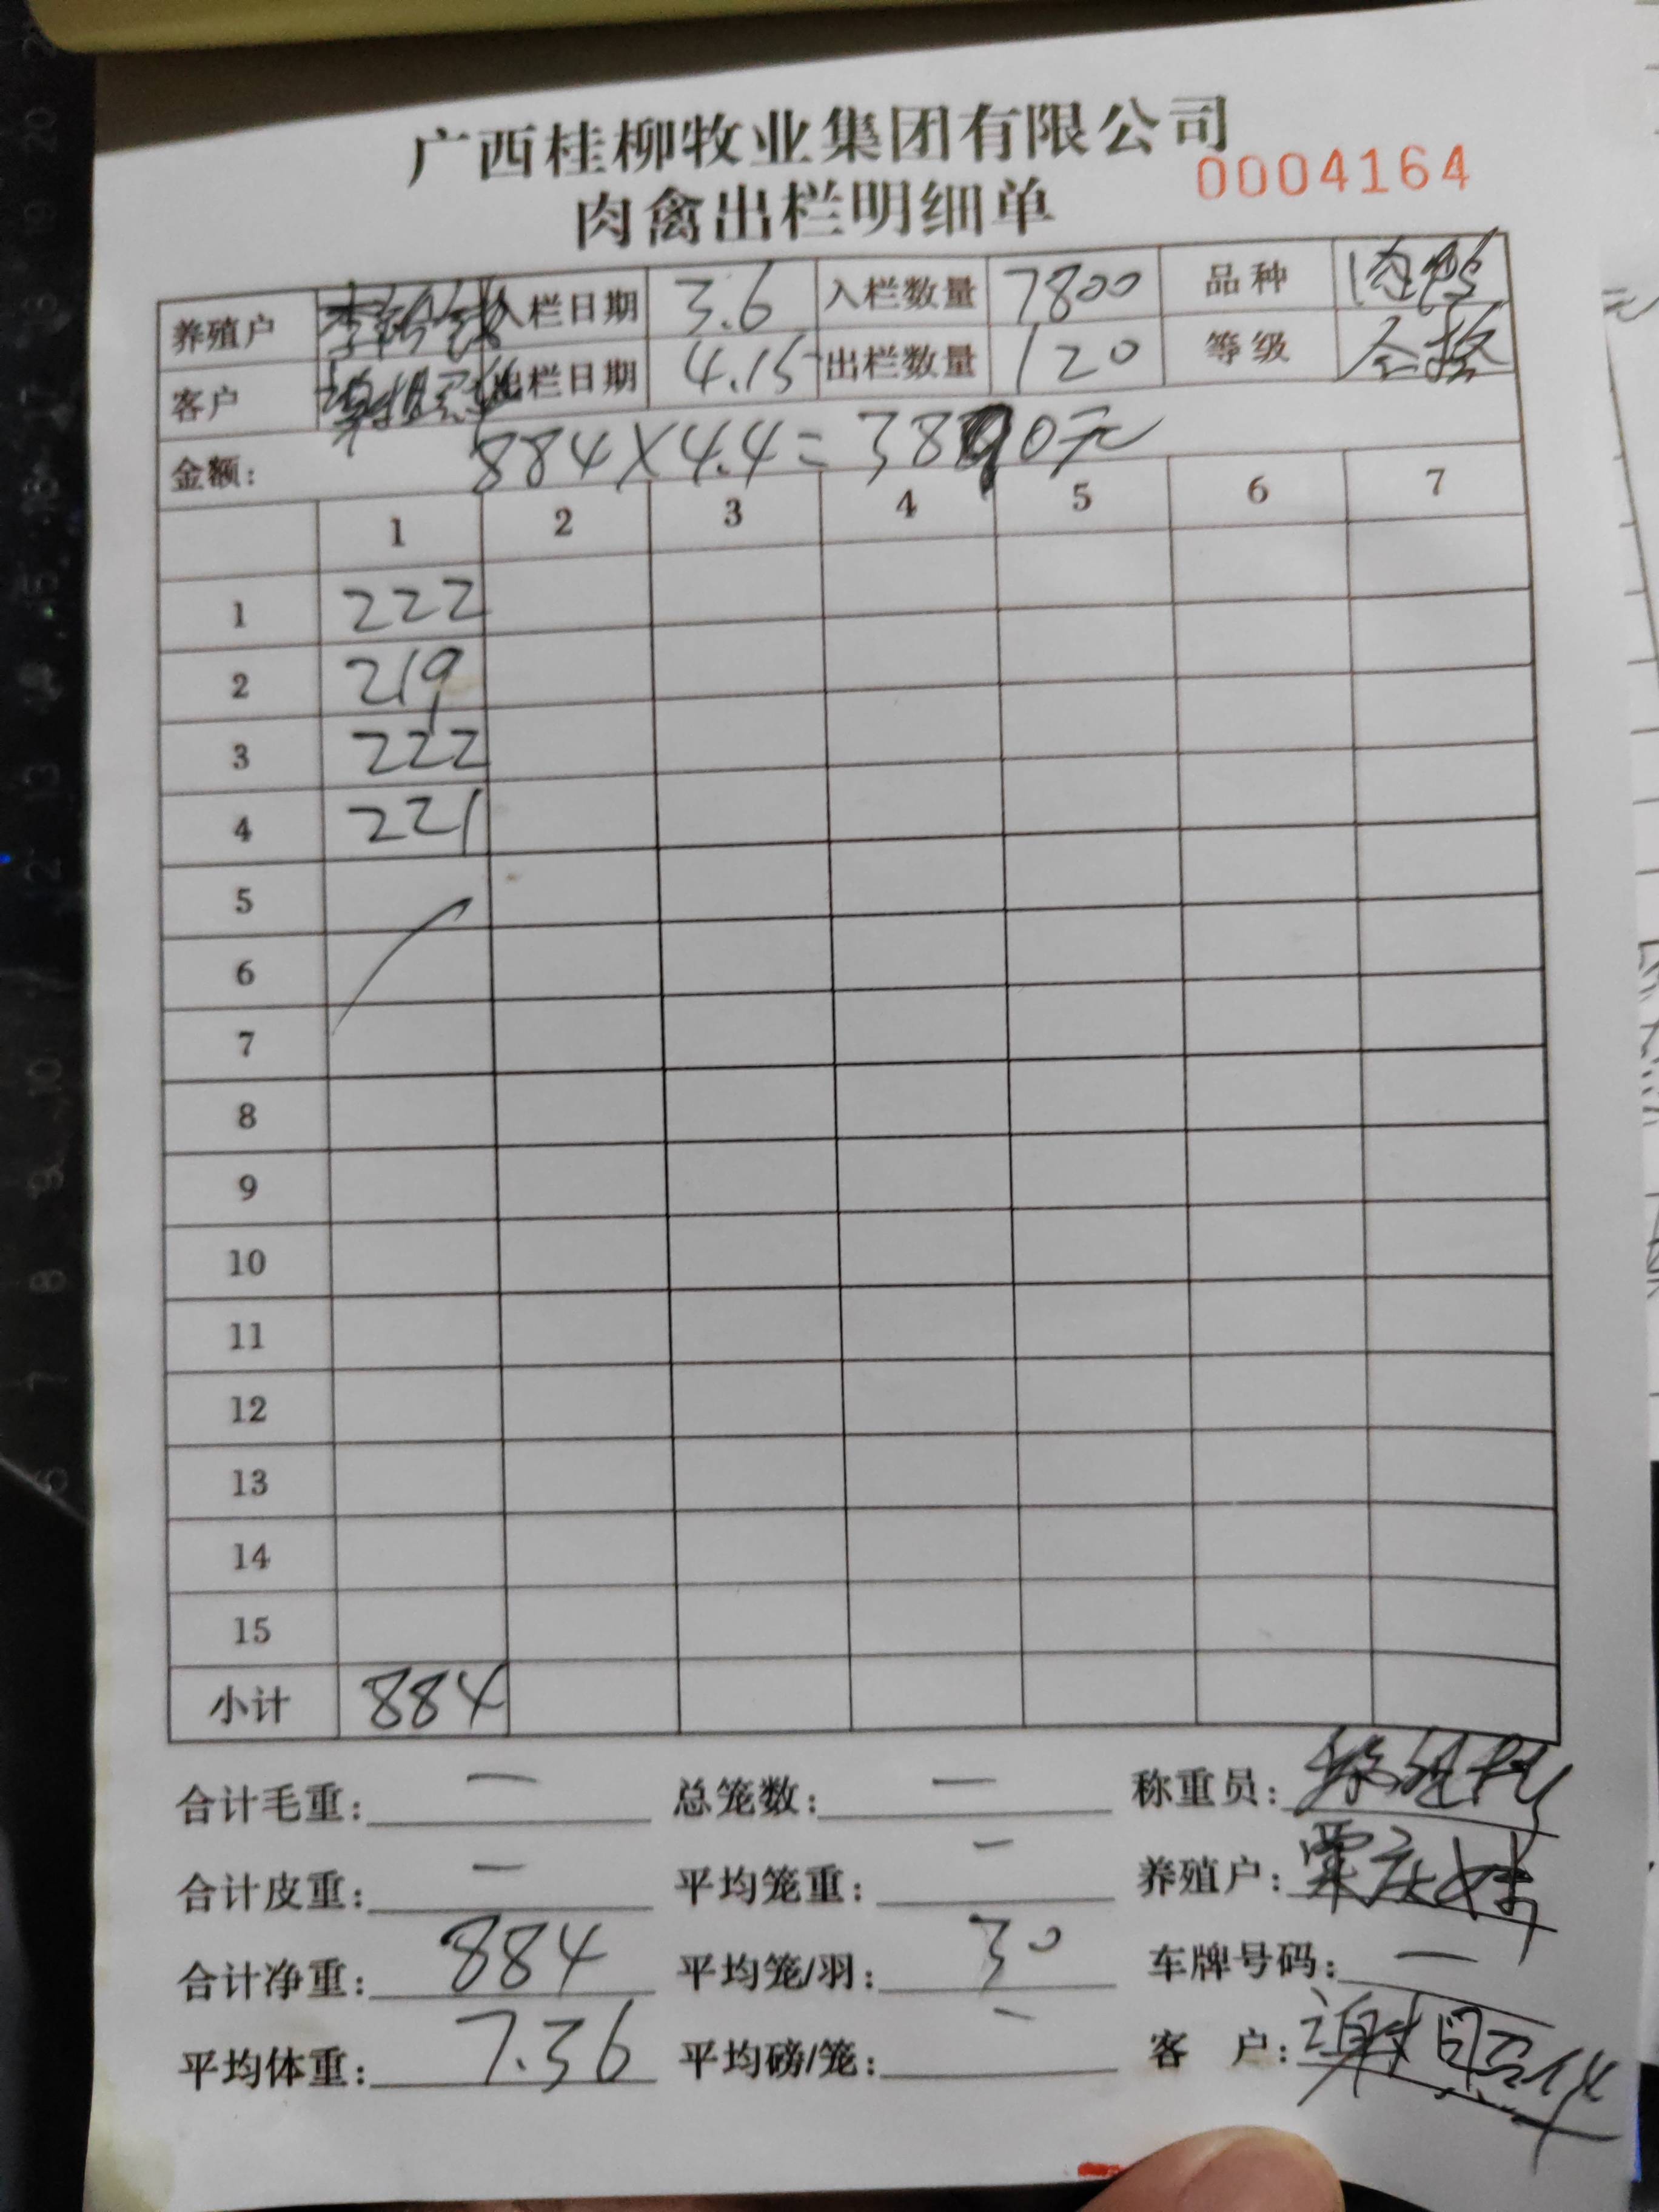 广西桂柳牧业集团有限公司
0004164
肉禽出栏明细单
养殖户 入栏日期 3.6 入栏数量 7800 品种 肉鸭
客户 出栏日期 4.15 出栏数量 120 等级 合格
金额: 884×4.4=3890元
1 2 3 4 5 6 7
1 222
2 219
3 222
4 221
5
6
7
8
9
10
11
12
13
14
15
小计 884
合计毛重: — 总笼数: — 称重员:
合计皮重: — 平均笼重: — 养殖户: 覃庆妹
合计净重: 884 平均笼/羽: 30 车牌号码: —
平均体重: 7.36 平均磅/笼: — 客 户: 谢昭华